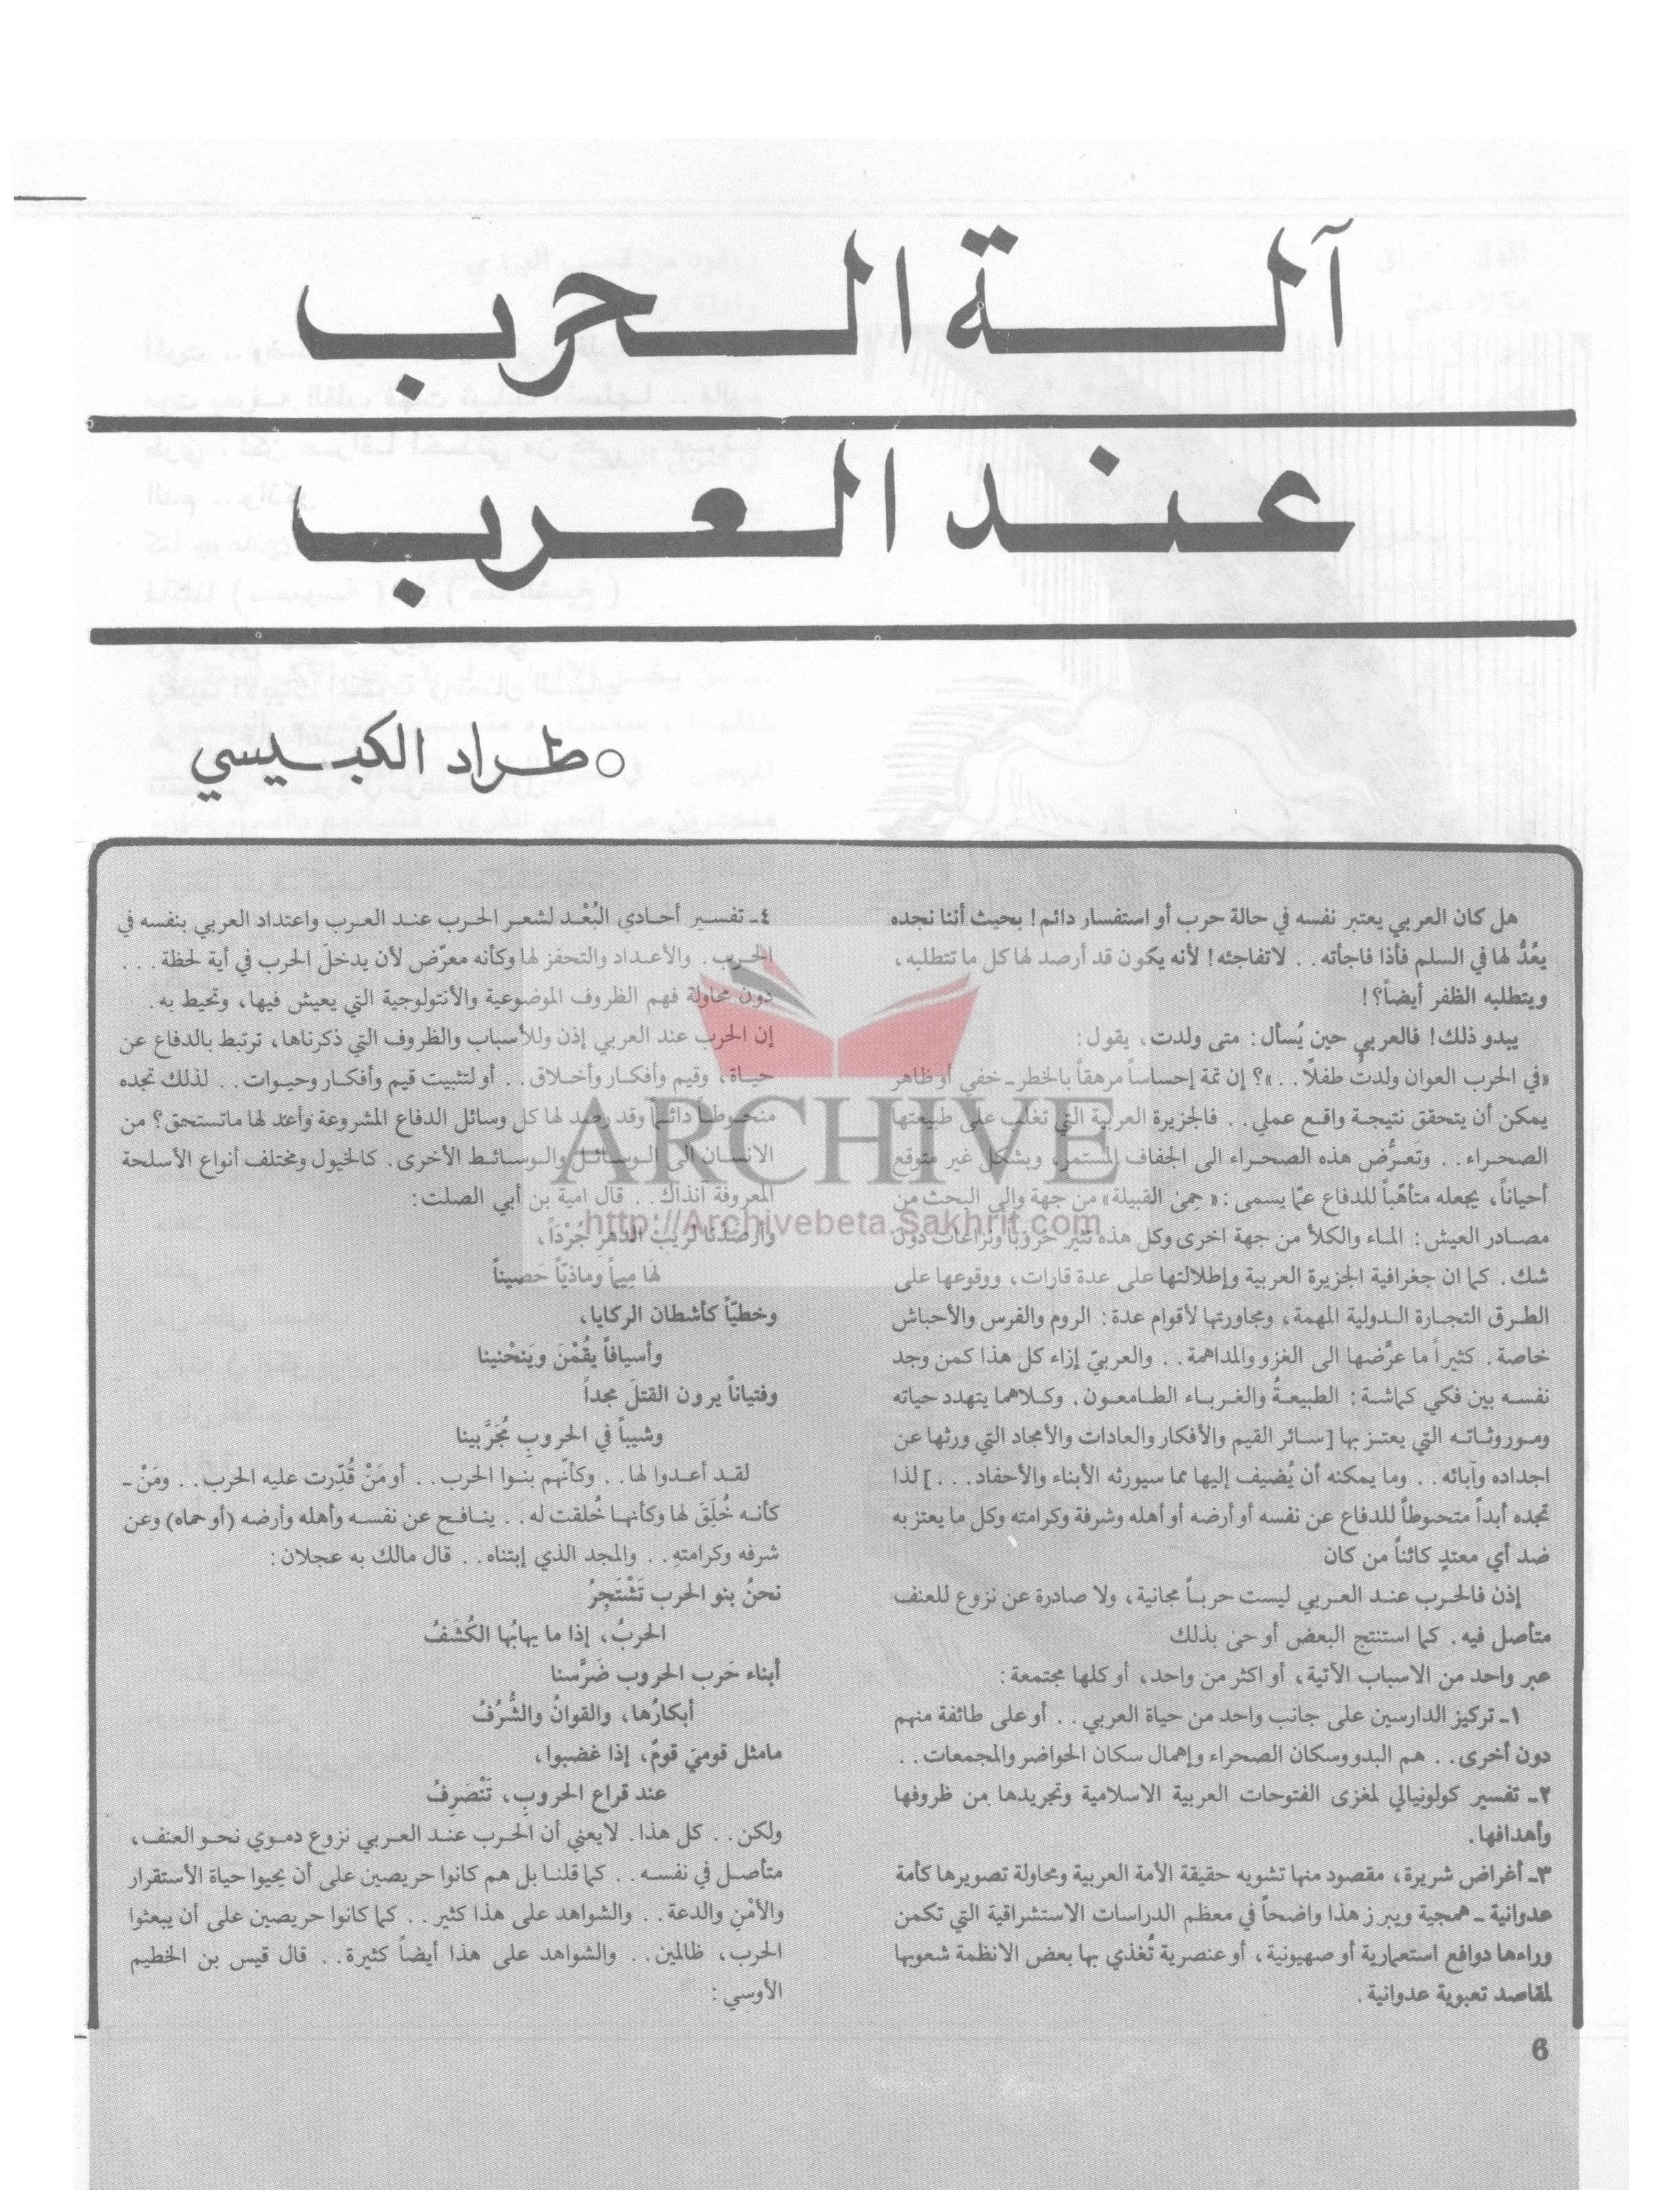 آلة الحرب
عند العرب
طراد الكبيسي
هل كان العربي يعتبر نفسه في حالة حرب أو استفسار دائم! بحيث أننا نجده
يعُدُّ لها في السلم فأذا فاجأته . . لاتفاجئه! لأنه يكون قد أرصد لها كل ما تتطلبه،
ويتطلبه الظفر أيضاً؟!
يبدو ذلك! فالعربي حين يُسأل: متى ولدت، يقول:
«في الحرب العوان ولدتُ طفلاً . .»؟ إن ثمة إحساساً مرهقاً بالخطر ـ خفي أو ظاهر
يمكن أن يتحقق نتيجة واقع عملي . . فالجزيرة العربية التي تغلب على طبيعتها
الصحراء . . وتَعرُّض هذه الصحراء الى الجفاف المستمر، وبشكل غير متوقع
أحياناً، يجعله متأهّباً للدفاع عمّا يسمى: «حِمىٰ القبيلة» من جهة وإلى البحث من
مصادر العيش: الماء والكلأ من جهة اخرى وكل هذه تثير حروباً ونزاعات دون
شك. كما ان جغرافية الجزيرة العربية وإطلالتها على عدة قارات، ووقوعها على
الطرق التجارة الدولية المهمة، ومجاورتها لأقوام عدة: الروم والفرس والأحباش
خاصة. كثيراً ما عرَّضها الى الغزو والمداهمة . . والعربيّ إزاء كل هذا كمن وجد
نفسه بين فكي كماشة: الطبيعةُ والغرباء الطامعون. وكلاهما يتهدد حياته
وموروثاته التي يعتز بها [سائر القيم والأفكار والعادات والأمجاد التي ورثها عن
اجداده وآبائه . . وما يمكنه أن يُضيف إليها مما سيورثه الأبناء والأحفاد . . .] لذا
تجده أبداً متحنوطاً للدفاع عن نفسه أو أرضه أو أهله وشرفة وكرامته وكل ما يعتز به
ضد أي معتدٍ كائناً من كان
إذن فالحرب عند العربي ليست حرباً مجانية، ولا صادرة عن نزوع للعنف
متأصل فيه. كما استنتج البعض أو حىٰ بذلك
عبر واحد من الاسباب الآتية، أو اكثر من واحد، أو كلها مجتمعة:
١ـ تركيز الدارسين على جانب واحد من حياة العربي . . أو على طائفة منهم
دون أخرى . . هم البدو وسكان الصحراء وإهمال سكان الحواضر والمجمعات . .
٢ـ تفسير كولونيالي لمغزى الفتوحات العربية الاسلامية وتجريدها من ظروفها
وأهدافها.
٣ـ أغراض شريرة، مقصود منها تشويه حقيقة الأمة العربية ومحاولة تصويرها كأمة
عدوانية ـ همجية ويبرز هذا واضحاً في معظم الدراسات الاستشراقية التي تكمن
وراءها دوافع استعمارية أو صهيونية، أو عنصرية تُغذي بها بعض الانظمة شعوبها
لمقاصد تعبوية عدوانية.
٤ـ تفسير أحادي البُعْد لشعر الحرب عند العرب واعتداد العربي بنفسه في
الحرب. والأعداد والتحفز لها وكأنه معرّض لأن يدخلَ الحرب في أية لحظة . . .
دون محاولة فهم الظروف الموضوعية والأنتولوجية التي يعيش فيها، وتحيط به.
إن الحرب عند العربي إذن وللأسباب والظروف التي ذكرناها، ترتبط بالدفاع عن
حياة، وقيم وأفكار وأخلاق . . أو لتثبيت قيم وأفكار وحيوات . . لذلك تجده
منحوطاً دائماً وقد رصد لها كل وسائل الدفاع المشروعة وأعدّ لها ماتستحق؟ من
الانسان الى الوسائل والوسائط الأخرى. كالخيول ومختلف أنواع الأسلحة
المعروفة آنذاك . . قال امية بن أبي الصلت:
وأرصَدْنا لريب الدهر جُرْدَاً،
لها مِيماً وماذيّاً حَصيناً
وخطيّاً كأشطان الركايا،
وأسيافاً يقُمْنَ وينحْنينا
وفتياناً يرون القتلَ مجداً
وشيباً في الحروبِ مُجَرَّبينا
لقد أعدوا لها . . وكأنّهم بنوا الحرب . . أو مَنْ قُدِّرت عليه الحرب . . ومَنْ ـ
كأنه خُلِقَ لها وكأنها خُلقت له . . ينافح عن نفسه وأهله وأرضه (أو حماه) وعن
شرفه وكرامتهِ . . والمجد الذي إبتناه . . قال مالك به عجلان:
نحنُ بنو الحرب تَشْتَجِرُ
الحربُ، إذا ما يهابُها الكُشَفُ
أبناء حَرب الحروب ضَرَّسنا
أبكارُها، والقوانُ والشُّرُفُ
مامثل قوميَ قومُ، إذا غضبوا،
عند قراع الحروبِ، تَنْصَرِفُ
ولكن . . كل هذا. لايعني أن الحرب عند العربي نزوع دموي نحو العنف،
متأصل في نفسه . . كما قلنا بل هم كانوا حريصين على أن يحيوا حياة الأستقرار
والأمْنِ والدعة . . والشواهد على هذا كثير . . كما كانوا حريصين على أن يبعثوا
الحرب، ظالمين . . والشواهد على هذا أيضاً كثيرة . . قال قيس بن الخطيم
الأوسي:
6
ARCHIVE
http://Archivebeta.Sakhrit.com